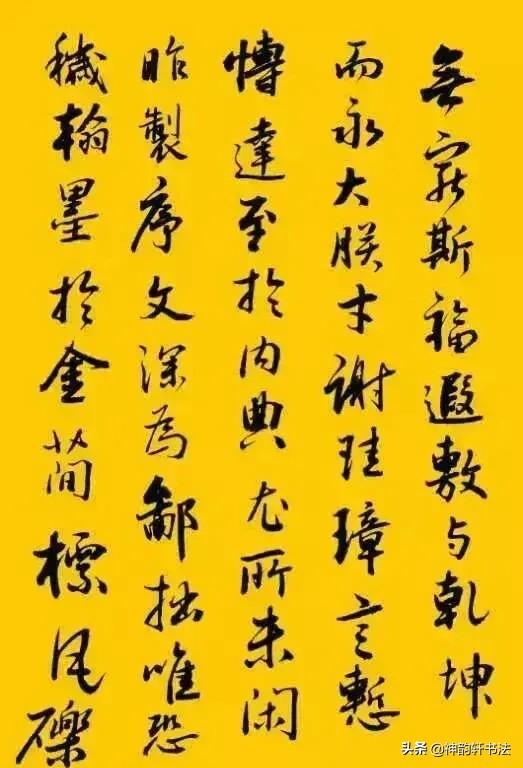 無窮斯福遐敷与乾坤
而永大朕才謝珪璋言慙
博達至於内典尤所未闲
昨製序文深為鄙拙唯恐
穢翰墨於金簡標瓦礫
头条 @神韵轩书法